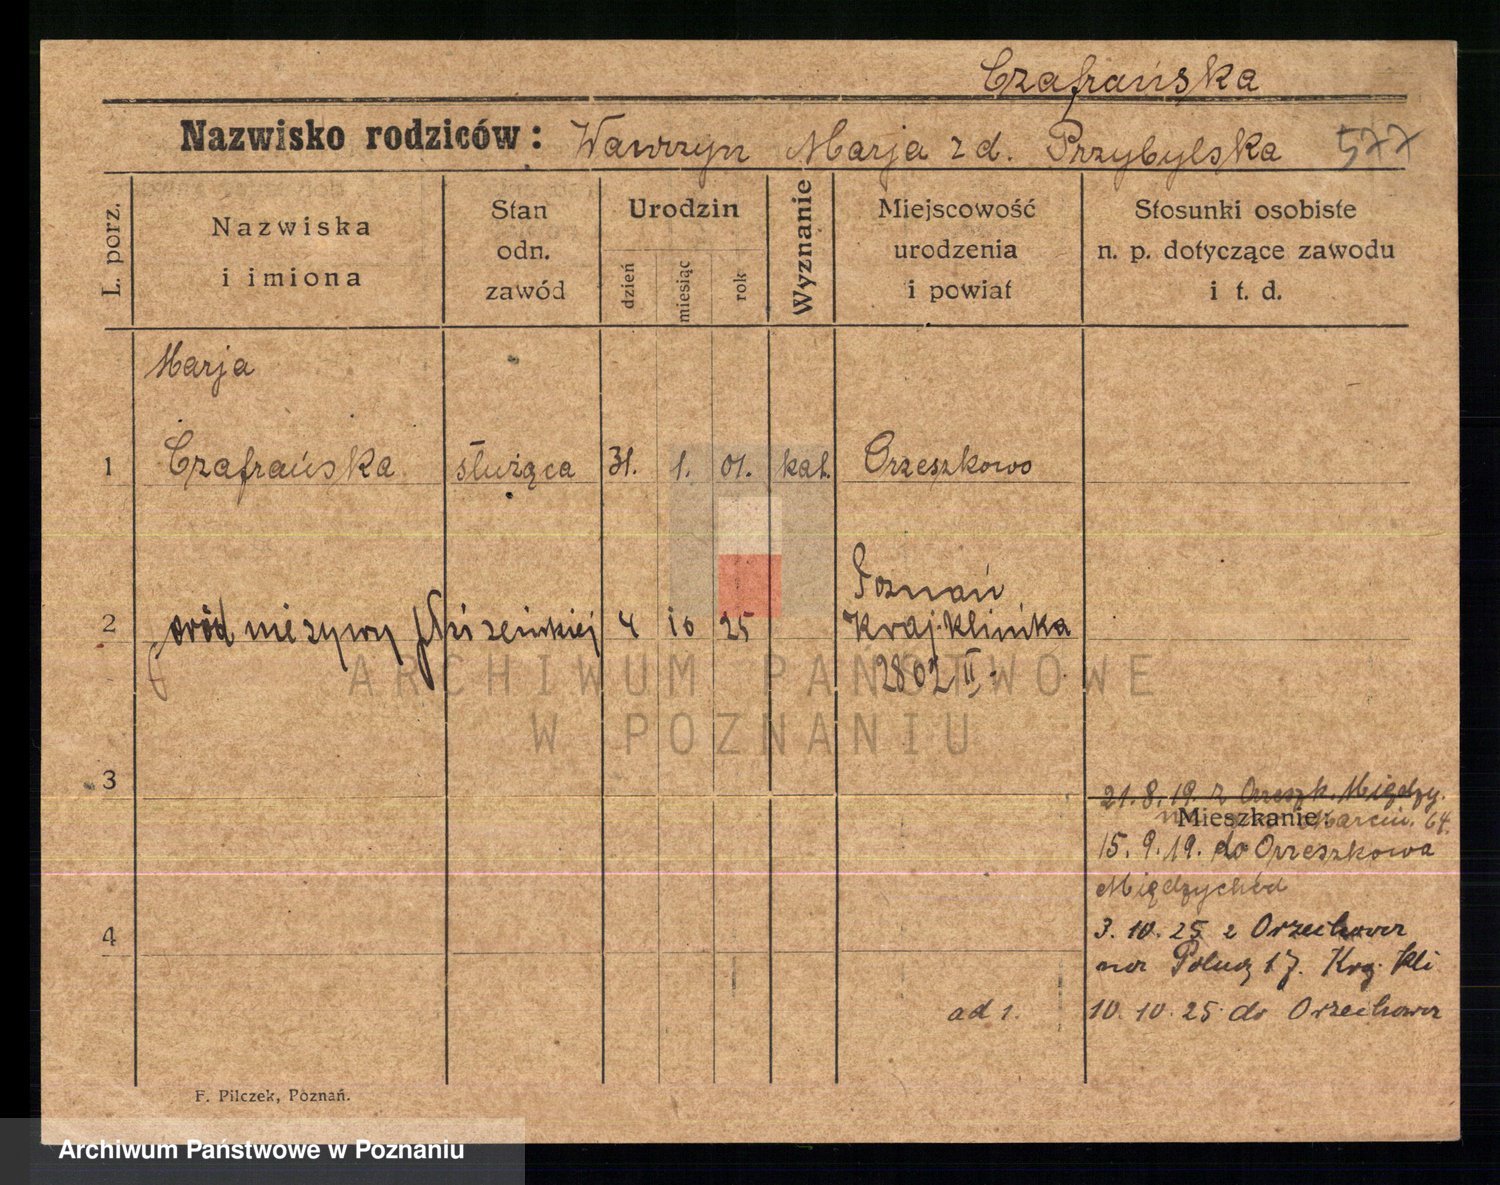 Czafrańska
Nazwisko rodziców: Wawrzyn Marja z d. Przybylska 577
L. porz.
Nazwiska
i imiona
Stan
odn.
zawód
Urodzin
dzień
miesiąc
rok
Wyznanie
Miejscowość
urodzenia
i powiat
Stosunki osobiste
n. p. dotyczące zawodu
i t. d.
Marja
1 Czafrańska służąca 31. 1. 01. kat. Orzeszkowo
Poznań
2 nieżywy płci żeńskiej 4 10 25 Kraj. Klinika
2802 II.
ARCHIWUM PAŃSTWOWE
W POZNANIU
3
21. 8. 19. z Orzeszk. Między.
Mieszkanie: Marcin. 64.
15. 9. 19. do Orzeszkowa
Międzychód
4
3. 10. 25 z Orzechowa
na 17. Kraj. Kli
ad 1. 10. 10. 25 do Orzechowa
F. Pilczek, Poznań.
Archiwum Państwowe w Poznaniu